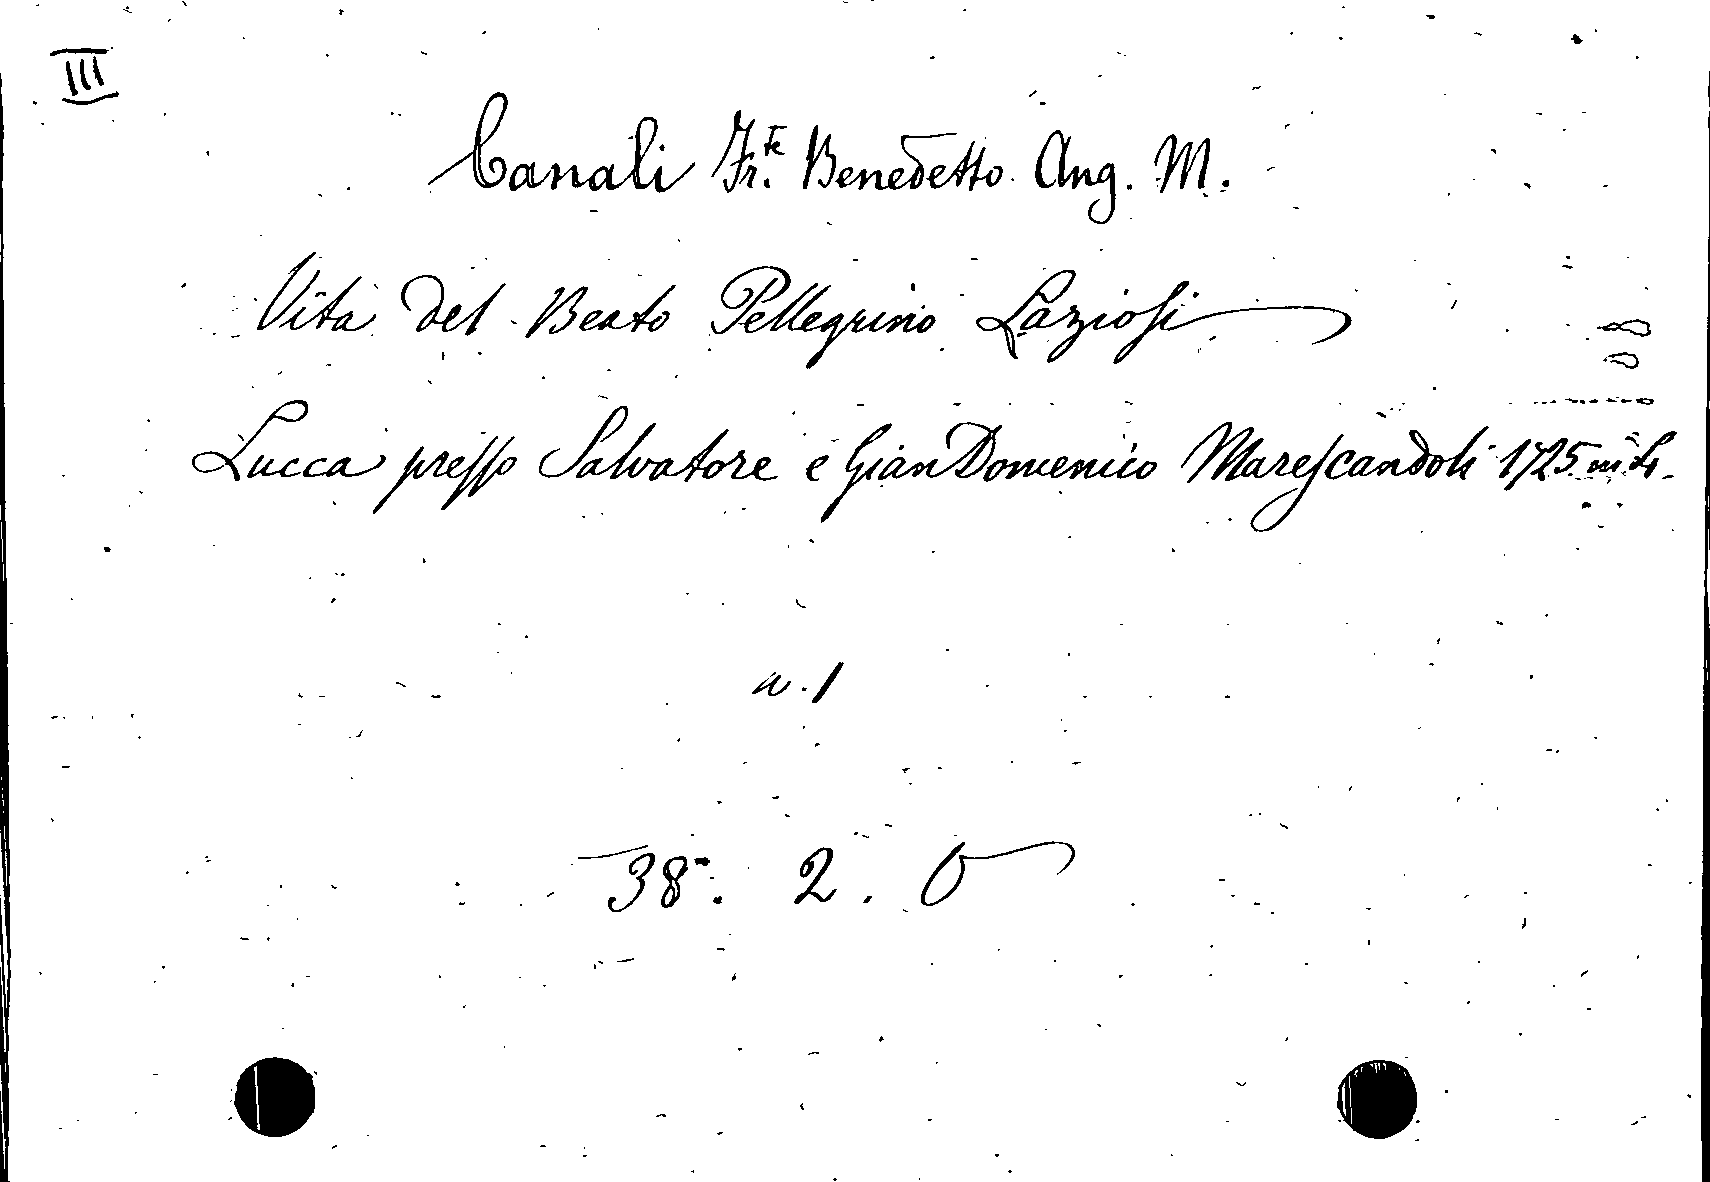 III
Canali Fr.te Benedetto Ang. M.
Vita del Beato Pellegrino Laziosi
Lucca presso Salvatore e Gian Domenico Marescandoli 1725 in
n. 1
38. 2. 0